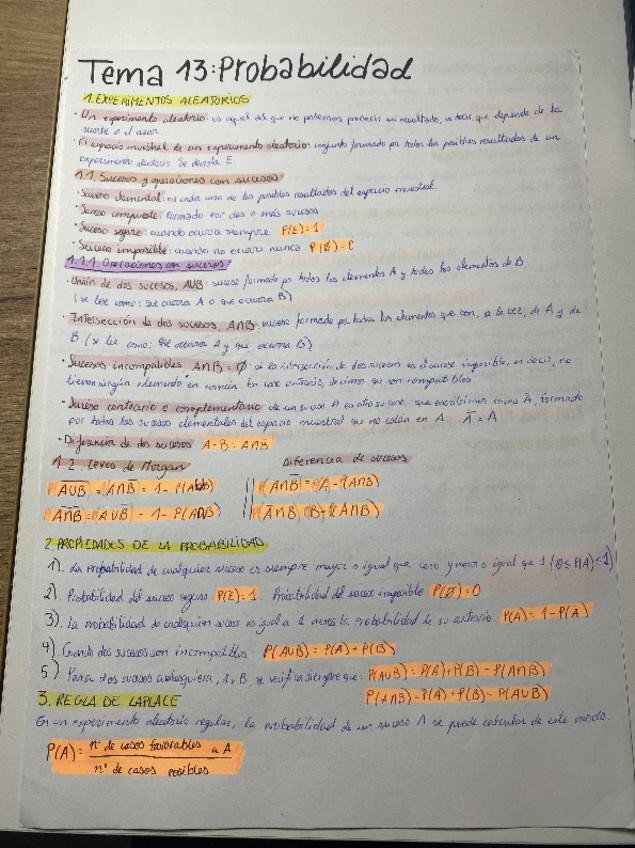 Tema 13: Probabilidad
1. EXPERIMENTOS ALEATORIOS
· Un experimento aleatorio: es aquel del que no podemos predecir su resultado, es decir, que depende de la
suerte o el azar.
· El espacio muestral de un experimento aleatorio: conjunto formado por todos los posibles resultados de un
experimento aleatorio. Se denota E.
1.1. Sucesos y operaciones con sucesos
· Suceso elemental: es cada uno de los posibles resultados del espacio muestral.
· Suceso compuesto: formado por dos o más sucesos
· Suceso seguro: cuando ocurre siempre P(E)=1
· Suceso imposible: cuando no ocurre nunca P(Ø)=0
1.1.1. Operaciones con sucesos
· Unión de dos sucesos, AUB: suceso formado por todos los elementos A y todos los elementos de B.
(se lee como: que ocurra A o que ocurra B)
· Intersección de dos sucesos, A∩B: suceso formado por todos los elementos que son, a la vez, de A y de
B. (se lee como: que ocurra A y que ocurra B)
· Sucesos incompatibles, A∩B = Ø: si la intersección de dos sucesos es el suceso imposible, es decir, no
tienen ningún elemento en común. En caso contrario, decimos que son compatibles
· Suceso contrario o complementario: de un suceso A es otro suceso, que escribimos como Ā, formado
por todos los sucesos elementales del espacio muestral que no están en A.
· Diferencia de dos sucesos A-B = A∩B̅
1.2. Leyes de Morgan Diferencia de sucesos
2. PROPIEDADES DE LA PROBABILIDAD
1). La probabilidad de cualquier suceso es siempre mayor o igual que cero y menor o igual que 1 (0≤P(A)≤1)
2) Probabilidad del suceso seguro P(E)=1. Probabilidad del suceso imposible P(Ø)=0
3). La probabilidad de cualquier suceso es igual a 1 menos la probabilidad de su contrario. P(A)=1-P(Ā)
4) Cuando dos sucesos son incompatibles: P(AUB) = P(A)+P(B)
5) Para dos sucesos cualesquiera, A y B, se verifica siempre que: P(AUB) = P(A)+P(B)-P(A∩B)
P(A∩B)=P(A)+P(B)-P(AUB)
3. REGLA DE LAPLACE
En un experimento aleatorio regular, la probabilidad de un suceso A se puede calcular de este modo.
P(A) = nº de casos favorables a A
nº de casos posibles